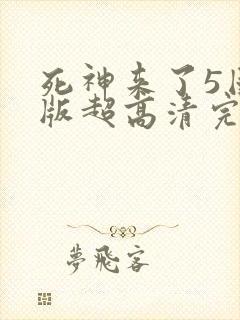 死神来了5
版超高清完
夢飛客